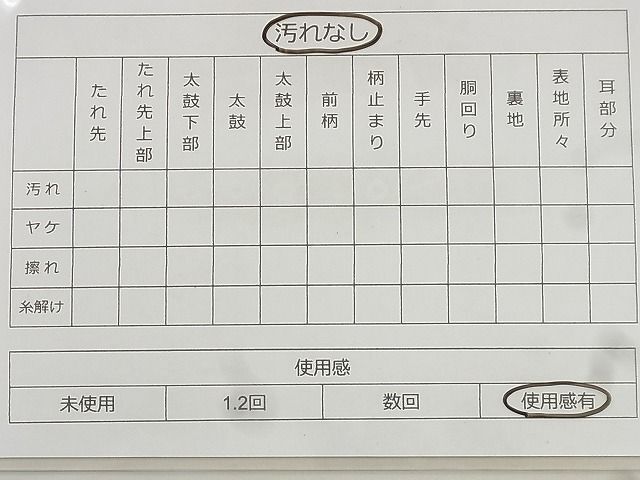 汚れなし
たれ先 たれ先上部 太鼓下部 太鼓 太鼓上部 前柄 柄止まり 手先 胴回り 裏地 表地所々 耳部分
汚れ
ヤケ
擦れ
糸解け
使用感
未使用 1.2回 数回 使用感有